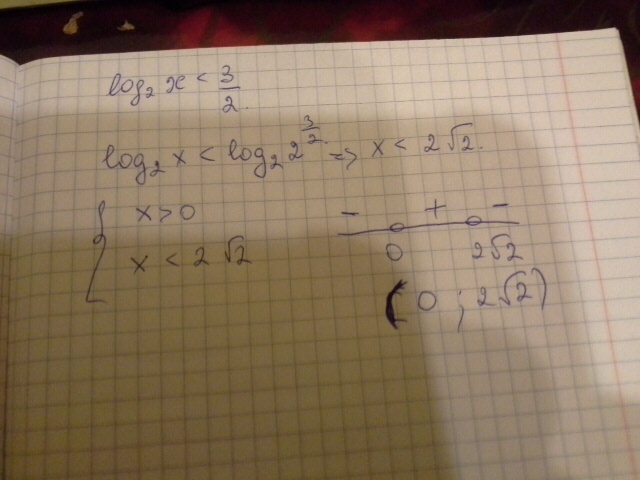 log₂ x < 3/2.
log₂ x < log₂ 2^(3/2). => x < 2√2.
{ x > 0
x < 2√2
− + −
0 2√2
(0 ; 2√2)